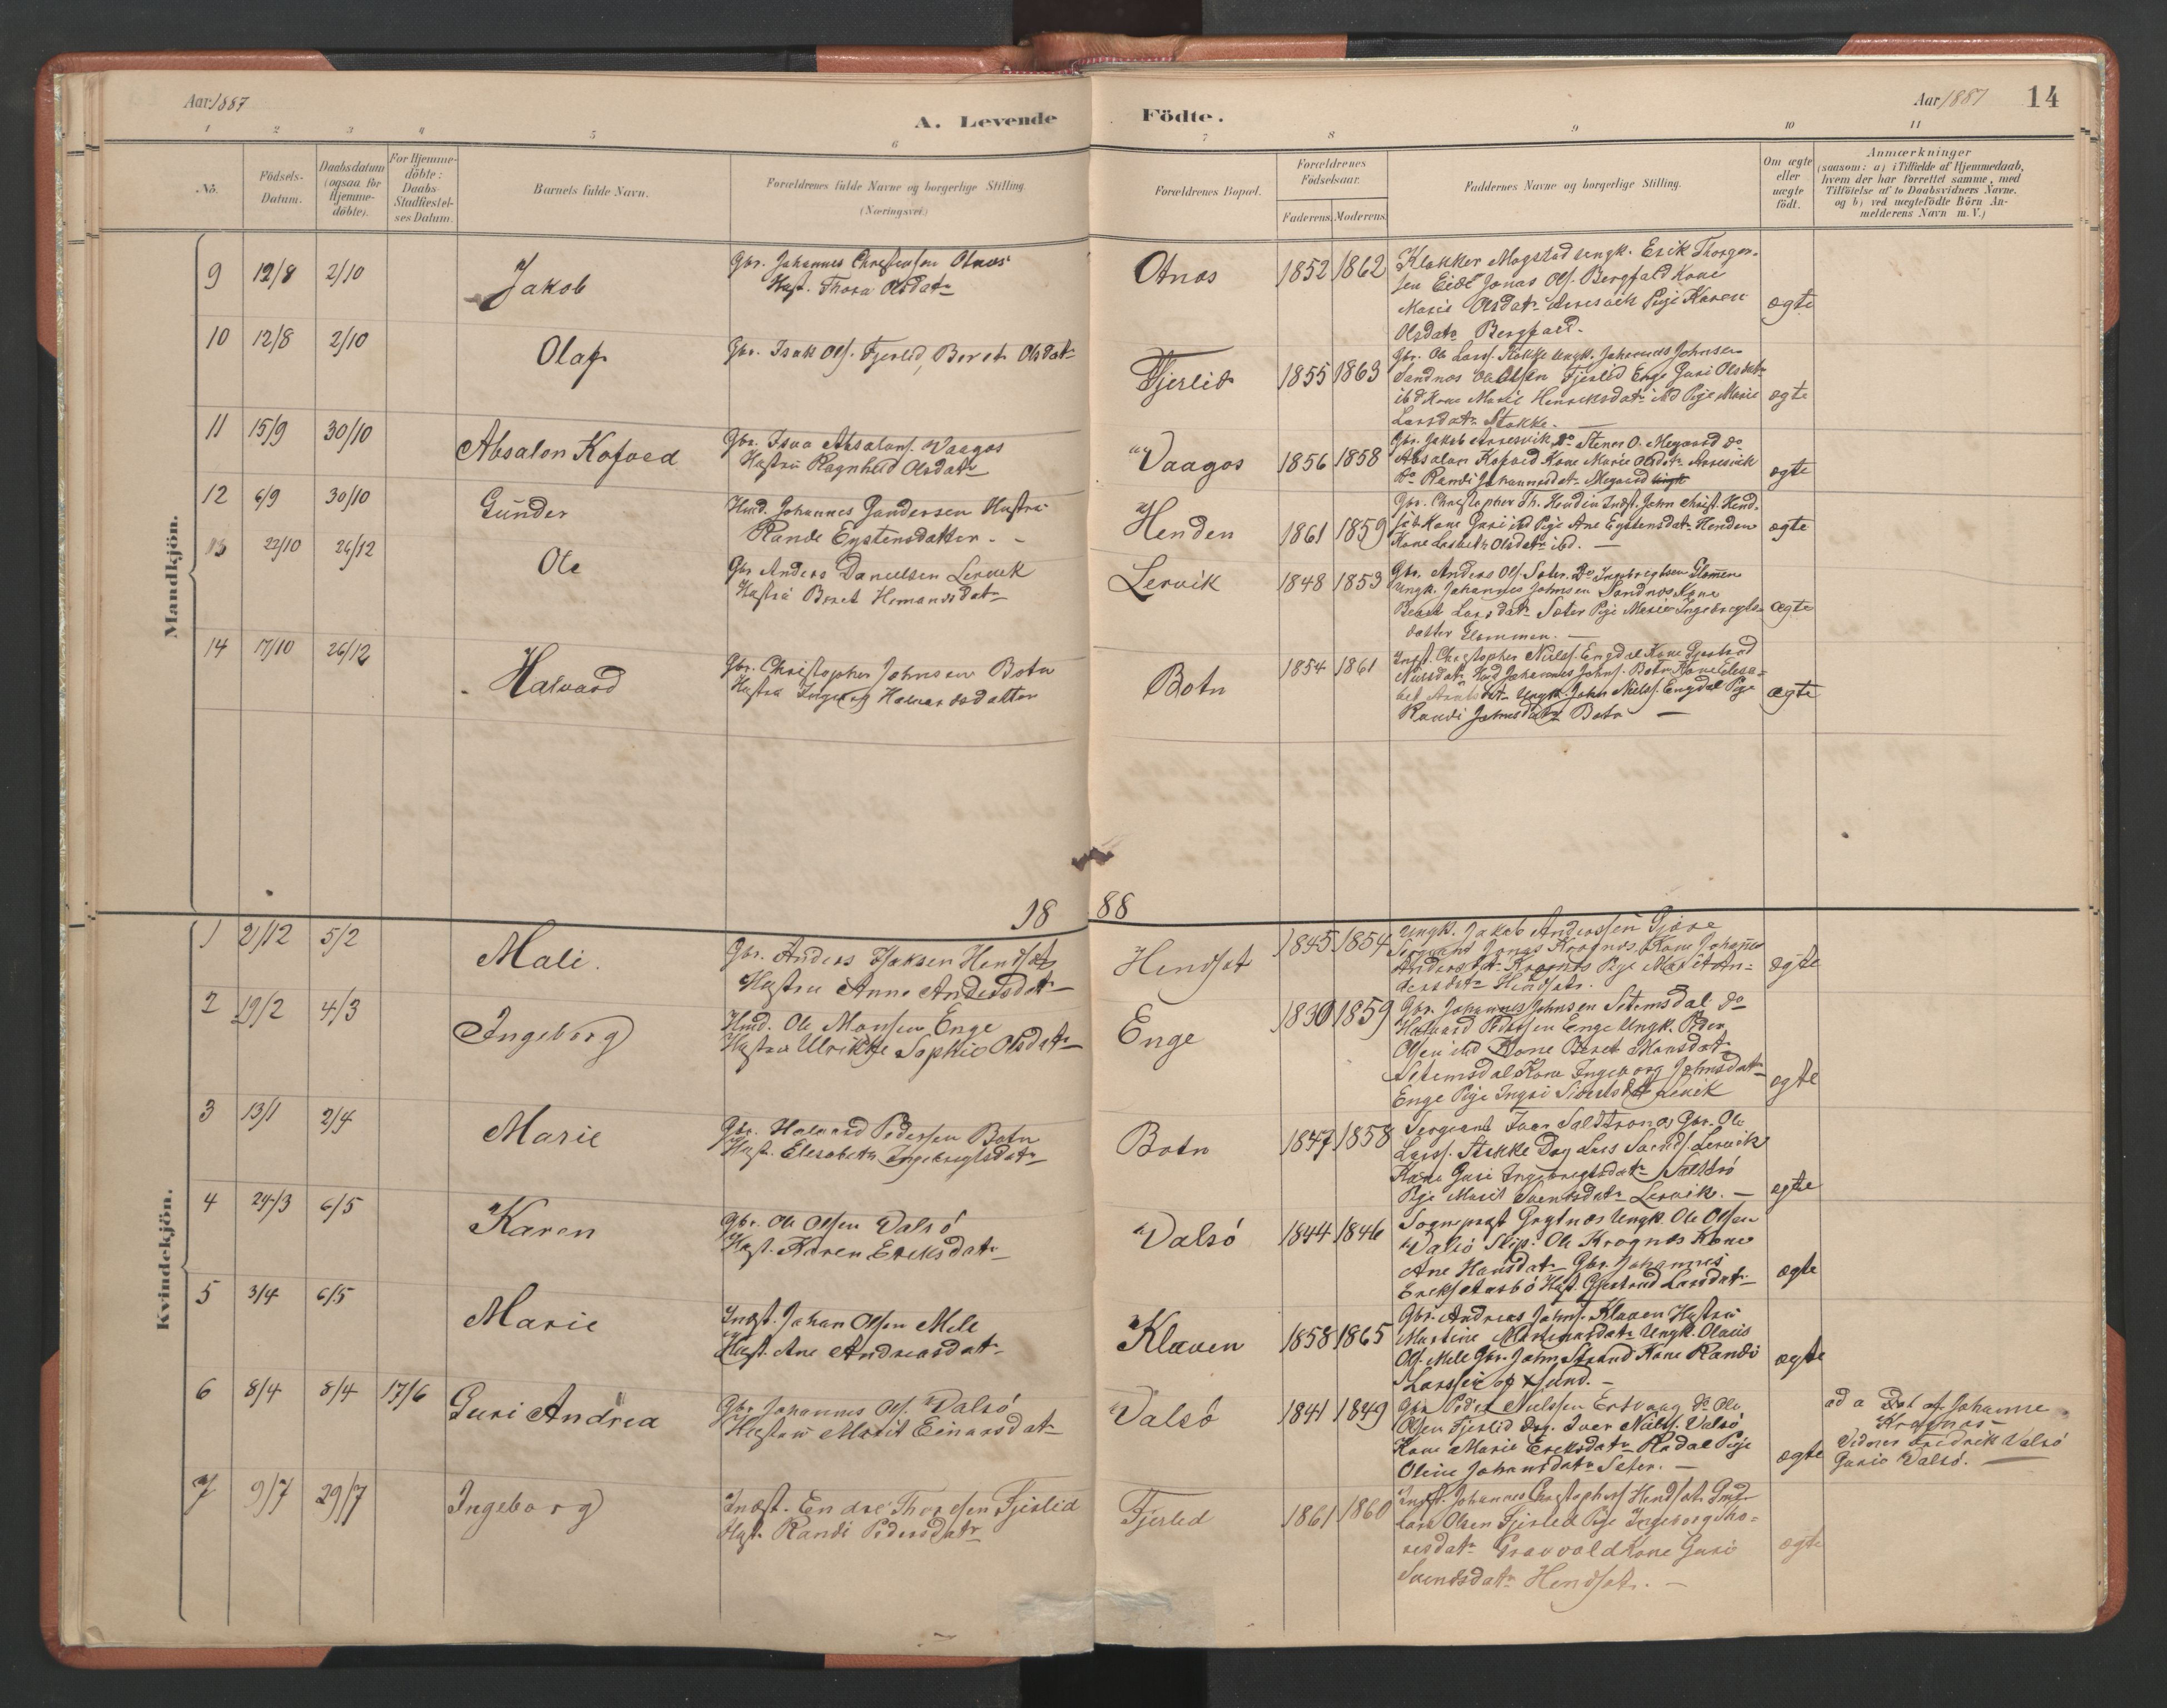 Aar 1887
A. Levende Födte.
Aar 1887 14
1 2 3 4 5 6 7 8 9 10 11
No.
Födsels-
Datum.
Daabsdatum
(ogsaa for
Hjemme-
döbte).
For Hjemme-
döbte:
Daabs-
Stadfæstel-
ses Datum.
Barnets fulde Navn.
Forældrenes fulde Navne og borgerlige Stilling
(Næringsvei)
Forældrenes Bopæl.
Forældrenes
Födselsaar.
Faderens Moderens
Faddernes Navne og borgerlige Stilling.
Om ægte
eller
uægte
födt.
Anmærkninger
(saasom: a) i Tilfælde af Hjemmedaab,
hvem der har forrettet samme, med
Tilföielse af to Daabsvidners Navne.
og b) ved uægtefödte Börn An-
melderens Navn m. V.)
Mandkjön.
9 12/8 2/10 Jakob
Gbr. Johannes Christensen Otnæs
Hust. Thora Olsdatr
Otnæs 1852 1862
Klokker Mogstad Ungk. Erik Thorger-
sen Eide Jonas Ols. Bergfald Kone
Marit Olsdatr Arnesvik Pige Karen
Olsdatr Bergfald.
ægte
10 12/8 2/10 Olaf
Gbr. Isak Ols. Fjerlid, Beret Olsdatr
Fjerlid 1855 1863
Gbr. Ole Larss. Stokke Ungk. Johannes Johnsen
Sandnes Ole Olsen Fjerlid Enge Guri Olsdatr
ibd Kone Marit Henriksdatr ibd Pige Marie
Larsdatr Stokke.
ægte
11 15/9 30/10 Absalon Kofoed
Gbr. Isaa Absalons. Vaagos
Hustru Ragnhild Olsdatr
Vaagos 1856 1858
Gbr. Jakob Arnesvik Do Stener O. Megaard do
Absalon Kofoed Kone Marie Olsdatr Arnesvik
do Randi Johannesdatr Megaard
ægte
12 6/9 30/10 Gunder
Hmd. Johannes Gundersen Hustru
Rande Eystensdatter.
Henden 1861 1859
Gbr. Christopher Th. Henden Indst. John Christ. Hend-
Kone Guri ibd Pige Ane Eystensdatr Henden
Kone Lisbet Olsdatr ibd.
ægte
13 22/10 26/12 Ole
Gbr Anders Danielsen Lervik
Hustru Beret Hemansdatr
Lervik 1848 1853
Gbr. Anders Ols. Sæter. Do Ingebregtsen Glammen
Ungk. Johannes Johnsen Sandnes Kone
Beret Larsdatr Sæter Pige Marie Ingebregts-
datter Glammen.
ægte
14 17/10 26/12 Halvard
Gbr. Christopher Johnsen Botn
Hustru Ingeborg Halvardsdatter
Botn 1854 1861
Indst. Christopher Niels. Engdal Kone Gjertrud
Nilsdatr Hmd Johannes Johns. Botn Kone Elisa-
bet Ungk. John Niels. Engdal Pige
Randi Johnsdatr Botn
ægte
1888
Kvindekjön.
1 21/12 5/2 Mali.
Gbr. Anders Isaksen Hendset
Hustru Anne Andersdatr
Hendset 1845 1854
Ungk. Jakob Anderssen Gjøre
Sergeant Jonas Krognes. Kone Johanne
Andersdatr Krognes Pige Marit An-
dersdatr Hendset.
ægte
2 19/2 4/3 Ingeborg
Hmd. Ole Monsen Enge
Hustru Ulrikke Sophie Olsdatr
Enge 1830 1859
Gbr. Johannes Johnsen Setemsdal do
Halvard Pedersen Enge Ungk. Peder
Olsen ibd Kone Beret Monsdatr
Setemsdal Kone Ingeborg Johnsdatr
Enge Pige Ingri Sivertsdatr Levik
ægte
3 13/1 2/4 Marie
Gbr. Halvard Pedersen Botn
Hust. Elisabeth Ingebregtsdatr
Botn 1847 1858
Sergeant Ivar Saltrones Gbr. Ole
Larss. Stokke Dag Lars Lervik
Kone Guri Ingebregtsdatr Saltrø
Pige Marit Svendsdatr Lervik.
ægte
4 24/3 6/5 Karen
Gbr. Ole Olsen Valsö
Hust. Karen Eriksdatr
Valsö 1844 1846
Sogneprest Grytnes Ungk. Ole Olsen
Valsö Skip. Ole Krognes Kone
Ane Hansdatr Gbr. Johannes
Eriks Aasbö Hust. Gjertrud Larsdatr
ægte
5 3/4 6/5 Marie
Indst. Johan Olsen Mele
Hust. Ane Andreasdatr
Klaven 1858 1865
Gbr. Andreas Johns. Klaven Hustru
Martine Mortensdatr Ungk. Olaus
Ols. Mele Gbr. John Strand Kone Randi
Larssen
ægte
6 8/4 8/4 17/6 Guri Andrea
Gbr Johannes Ols. Valsö
Hustru Marit Einarsdatr
Valsö 1841 1849
Gbr Peder Nielssen Ertvaag Do Ole
Olsen Fjerlid Dag. Iver Niels. Valsö
Kone Marie Eriksdatr Rodal Pige
Oline Johansdatr Seter.
ægte
ad a Døbt af Johanne
Krognes
Vidner Fredrik Valsö
Gurie Valsö.
7 9/7 29/7 Ingeborg
Indst. Endre Thoresen Fjerlid
Hust. Randi Pedersdatr
Fjerled 1861 1860
Indst. Johannes Christophers Hendset Gmd
Lars Olsen Fjerled Pige Ingeborg Tho-
resdatr Gravvold Kone Guri
Svendsdatr Hendset.
ægte